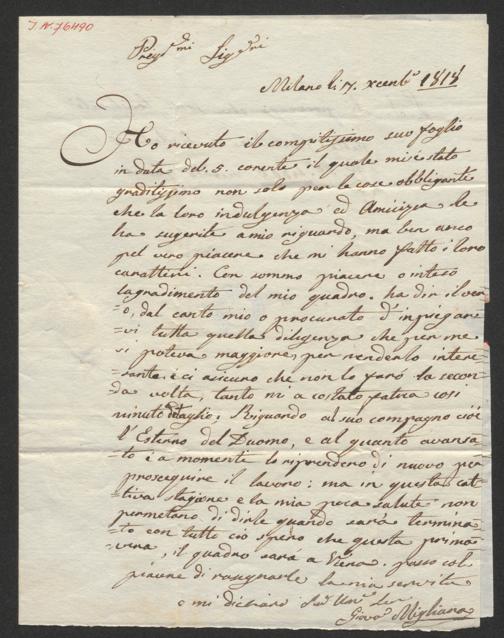 J.N. 76490
Preg.mi Sig.ri
Milano li 7. xcenb.e 1818
Ho ricevuto il compitissimo suo foglio
in data del. 5. corente il quale mi è stato
graditissimo non solo per le cose obbligante
che la loro indulgenza ed Amicizia le
ha sugerite a mio riguardo, ma ben anco
pel vero piacere che mi hanno fatto i loro
caratteri. Con sommo piacere o inteso
lagradimento del mio quadro. ha dir il ver
=o, dal canto mio o procurato d'inpiegare
=vi tutta quella diligenza che per me
si poteva maggiore, per renderlo intere
=sante, e ci asicuro che non lo farò la secon
=da volta, tanto mi a costato fatica cosi
minuto detaglio. Riguardo al suo compagno cioè
l'Esterno del Duomo, e al quanto avansa
=to è a momenti lo riprenderò di nuovo per
proseguire il lavoro: ma in questa cat
=tiva stagione e la mia poca salute non
permetano di dirle quando sarà termina
=to con tutto ciò spero che questa prima
=vera, il quadro sarà a Viena. passo col
piacere di rasegnarle la mia servitù
e mi dichiaro
Giov.i Migliara